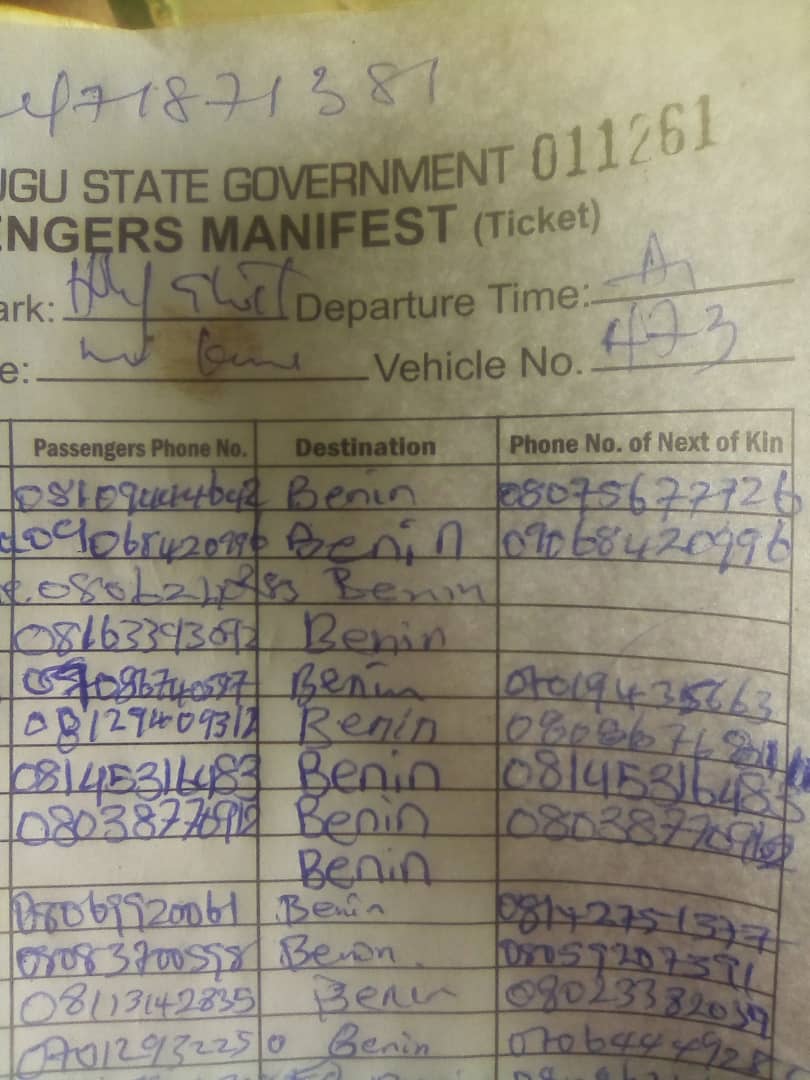 471871381
UGU STATE GOVERNMENT 011261
ENGERS MANIFEST (Ticket)
ark: Holy Ghost Departure Time:
e: Vehicle No. 473
Passengers Phone No. Destination Phone No. of Next of Kin
Benin 08075677726
09068420996 Benin 09068420996
Benin
08163393092 Benin
Benin
08129409312 Benin
08145316483 Benin 08145316483
08038770912 Benin
Benin
08069920061 Benin 08142751377
08083700598 Benin 08059207391
08113142835 Benin 08023382039
07012932250 Benin